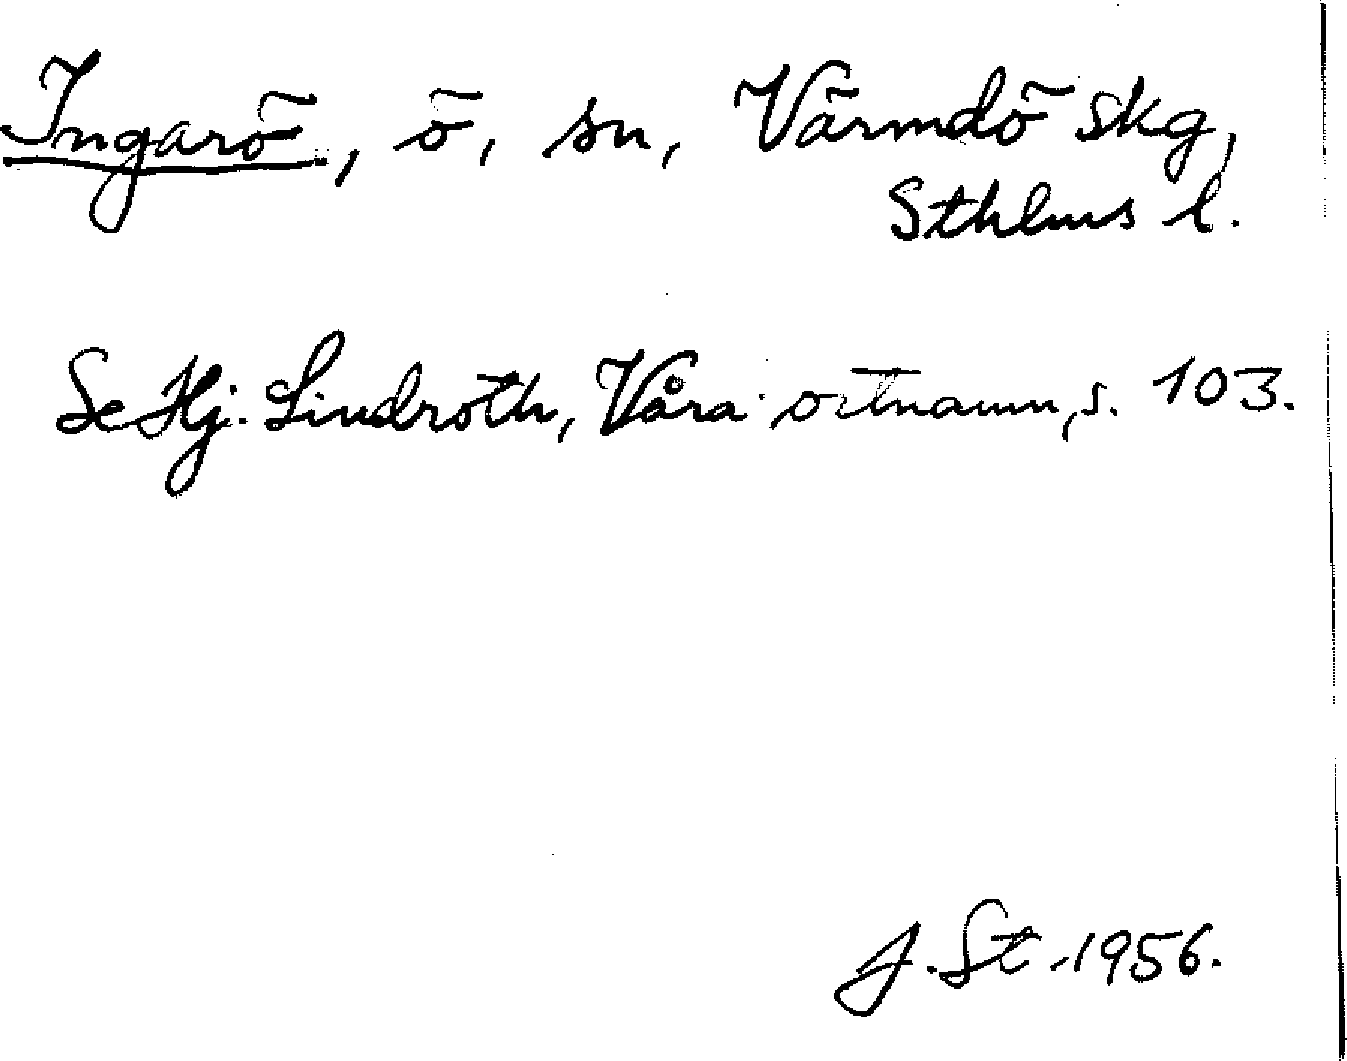 Ingarö, ö, sn, Värmdö skg,
Sthlms l.
Se Hj. Lindroth, Våra ortnamn, s. 103.
J. St. 1956.